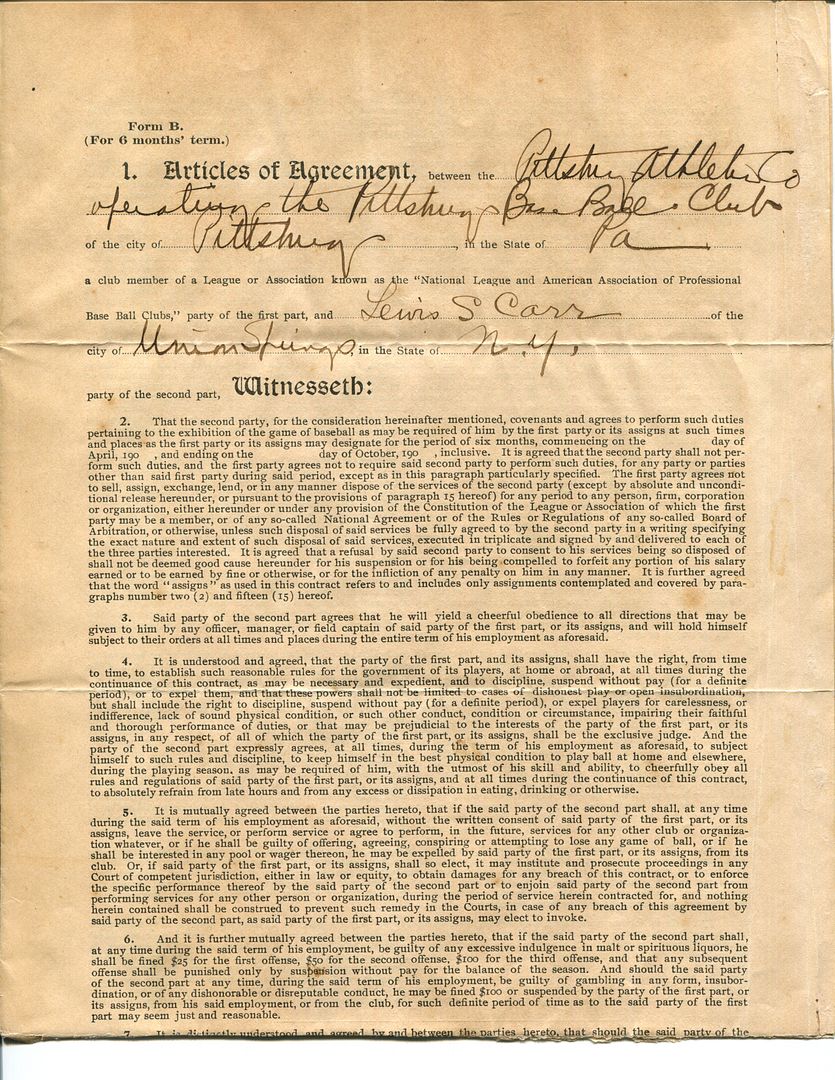 Form B.
(For 6 months' term.)
1. Articles of Agreement, between the Pittsburg Athletic Co
operating the Pittsburg Base Ball Club
of the city of Pittsburg, in the State of Pa
a club member of a League or Association known as the "National League and American Association of Professional
Base Ball Clubs," party of the first part, and Lewis S Carr of the
city of Union Springs, in the State of N.Y.
party of the second part, Witnesseth:
2. That the second party, for the consideration hereinafter mentioned, covenants and agrees to perform such duties
pertaining to the exhibition of the game of baseball as may be required of him by the first party or its assigns at such times
and places as the first party or its assigns may designate for the period of six months, commencing on the day of
April, 190 , and ending on the day of October, 190 , inclusive. It is agreed that the second party shall not per-
form such duties, and the first party agrees not to require said second party to perform such duties, for any party or parties
other than said first party during said period, except as in this paragraph particularly specified. The first party agrees not
to sell, assign, exchange, lend, or in any manner dispose of the services of the second party (except by absolute and uncondi-
tional release hereunder, or pursuant to the provisions of paragraph 15 hereof) for any period to any person, firm, corporation
or organization, either hereunder or under any provision of the Constitution of the League or Association of which the first
party may be a member, or of any so-called National Agreement or of the Rules or Regulations of any so-called Board of
Arbitration, or otherwise, unless such disposal of said services be fully agreed to by the second party in a writing specifying
the exact nature and extent of such disposal of said services, executed in triplicate and signed by and delivered to each of
the three parties interested. It is agreed that a refusal by said second party to consent to his services being so disposed of
shall not be deemed good cause hereunder for his suspension or for his being compelled to forfeit any portion of his salary
earned or to be earned by fine or otherwise, or for the infliction of any penalty on him in any manner. It is further agreed
that the word "assigns" as used in this contract refers to and includes only assignments contemplated and covered by para-
graphs number two (2) and fifteen (15) hereof.
3. Said party of the second part agrees that he will yield a cheerful obedience to all directions that may be
given to him by any officer, manager, or field captain of said party of the first part, or its assigns, and will hold himself
subject to their orders at all times and places during the entire term of his employment as aforesaid.
4. It is understood and agreed, that the party of the first part, and its assigns, shall have the right, from time
to time, to establish such reasonable rules for the government of its players, at home or abroad, at all times during the
continuance of this contract, as may be necessary and expedient, and to discipline, suspend without pay (for a definite
period), or to expel them, and that these powers shall not be limited to cases of dishonest play or open insubordination,
but shall include the right to discipline, suspend without pay (for a definite period), or expel players for carelessness, or
indifference, lack of sound physical condition, or such other conduct, condition or circumstance, impairing their faithful
and thorough performance of duties, or that may be prejudicial to the interests of the party of the first part, or its
assigns, in any respect, of all of which the party of the first part, or its assigns, shall be the exclusive judge. And the
party of the second part expressly agrees, at all times, during the term of his employment as aforesaid, to subject
himself to such rules and discipline, to keep himself in the best physical condition to play ball at home and elsewhere,
during the playing season, as may be required of him, with the utmost of his skill and ability, to cheerfully obey all
rules and regulations of said party of the first part, or its assigns, and at all times during the continuance of this contract,
to absolutely refrain from late hours and from any excess or dissipation in eating, drinking or otherwise.
5. It is mutually agreed between the parties hereto, that if the said party of the second part shall, at any time
during the said term of his employment as aforesaid, without the written consent of said party of the first part, or its
assigns, leave the service, or perform service or agree to perform, in the future, services for any other club or organiza-
tion whatever, or if he shall be guilty of offering, agreeing, conspiring or attempting to lose any game of ball, or if he
shall be interested in any pool or wager thereon, he may be expelled by said party of the first part, or its assigns, from its
club. Or, if said party of the first part, or its assigns, shall so elect, it may institute and prosecute proceedings in any
Court of competent jurisdiction, either in law or equity, to obtain damages for any breach of this contract, or to enforce
the specific performance thereof by the said party of the second part or to enjoin said party of the second part from
performing services for any other person or organization, during the period of service herein contracted for, and nothing
herein contained shall be construed to prevent such remedy in the Courts, in case of any breach of this agreement by
said party of the second part, as said party of the first part, or its assigns, may elect to invoke.
6. And it is further mutually agreed between the parties hereto, that if the said party of the second part shall,
at any time during the said term of his employment, be guilty of any excessive indulgence in malt or spirituous liquors, he
shall be fined $25 for the first offense, $50 for the second offense, $100 for the third offense, and that any subsequent
offense shall be punished only by suspension without pay for the balance of the season. And should the said party
of the second part at any time, during the said term of his employment, be guilty of gambling in any form, insubor-
dination, or of any dishonorable or disreputable conduct, he may be fined $100 or suspended by the party of the first part, or
its assigns, from his said employment, or from the club, for such definite period of time as to the said party of the first
part may seem just and reasonable.
7. It is distinctly understood and agreed by and between the parties hereto, that should the said party of the